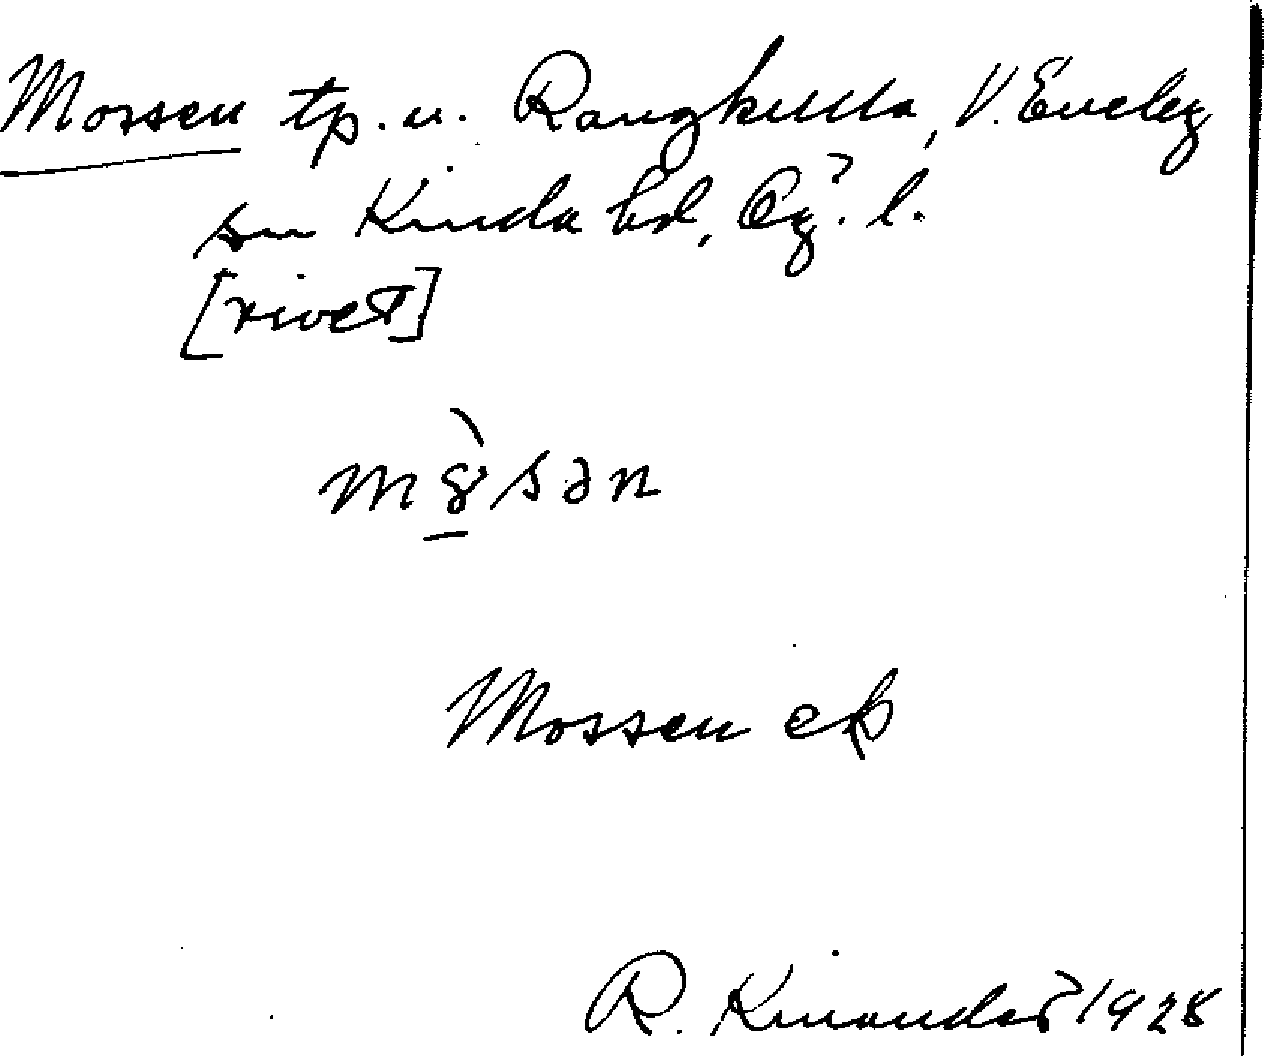 Mossen tp. u. Rangkulla, V. Eneby
sn Kinda hd, Ög. l.
[rivet]
sən
Mossen ek
R. Kinander 1928